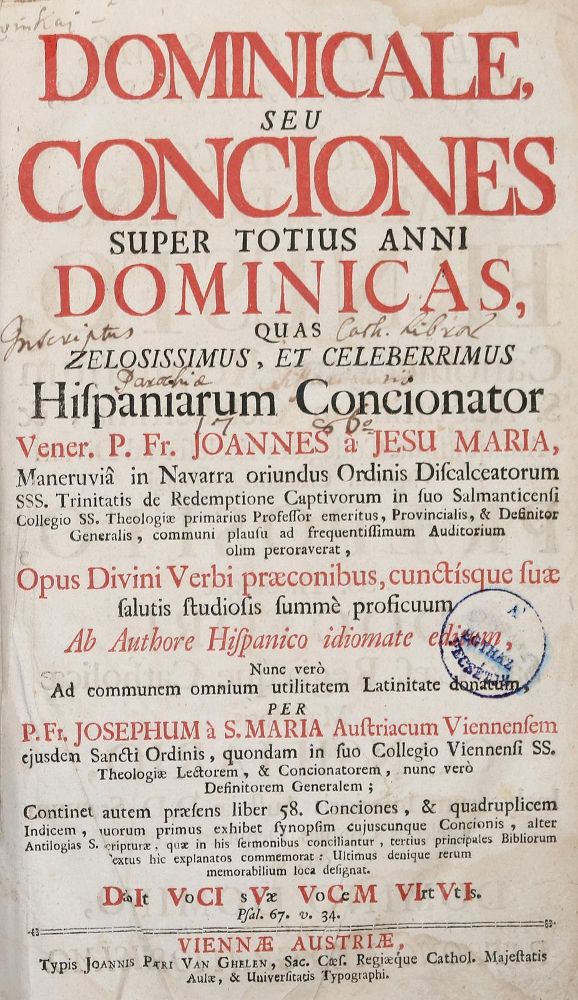 DOMINICALE,
SEU
CONCIONES
SUPER TOTIUS ANNI
DOMINICAS,
Inscriptus
QUAS
ZELOSISSIMUS, ET CELEBERRIMUS
Parochiæ
Hiſpaniarum Concionator
Vener. P. Fr. JOANNES à JESU MARIA,
Maneruviâ in Navarra oriundus Ordinis Diſcalceatorum
SSS. Trinitatis de Redemptione Captivorum in ſuo Salmanticenſi
Collegio SS. Theologiæ primarius Profeſſor emeritus, Provincialis, & Definitor
Generalis, communi plauſu ad frequentiſſimum Auditorium
olim peroraverat,
Opus Divini Verbi præconibus, cunctísque ſuæ
ſalutis ſtudioſis ſummè proficuum
Ab Authore Hiſpanico idiomate editum,
Nunc verò
Ad communem omnium utilitatem Latinitate donatum,
PER
P. Fr. JOSEPHUM à S. MARIA Auſtriacum Viennenſem
ejusdem Sancti Ordinis, quondam in ſuo Collegio Viennenſi SS.
Theologiæ Lectorem, & Concionatorem, nunc verò
Definitorem Generalem;
Continet autem præſens liber 58. Conciones, & quadruplicem
Indicem, quorum primus exhibet ſynopſim cujuscunque Concionis, alter
Antilogias S. Scripturæ, quæ in his ſermonibus conciliantur, tertius principales Bibliorum
textus hic explanatos commemorat: Ultimus denique rerum
memorabilium loca deſignat.
DabIt VoCI sVæ VoCeM VIrtVtIs.
Pſal. 67. v. 34.
VIENNÆ AUSTRIÆ,
Typis JOANNIS PETRI VAN GHELEN, Sac. Cæſ. Regiæque Cathol. Majeſtatis
Aulæ, & Univerſitatis Typographi.